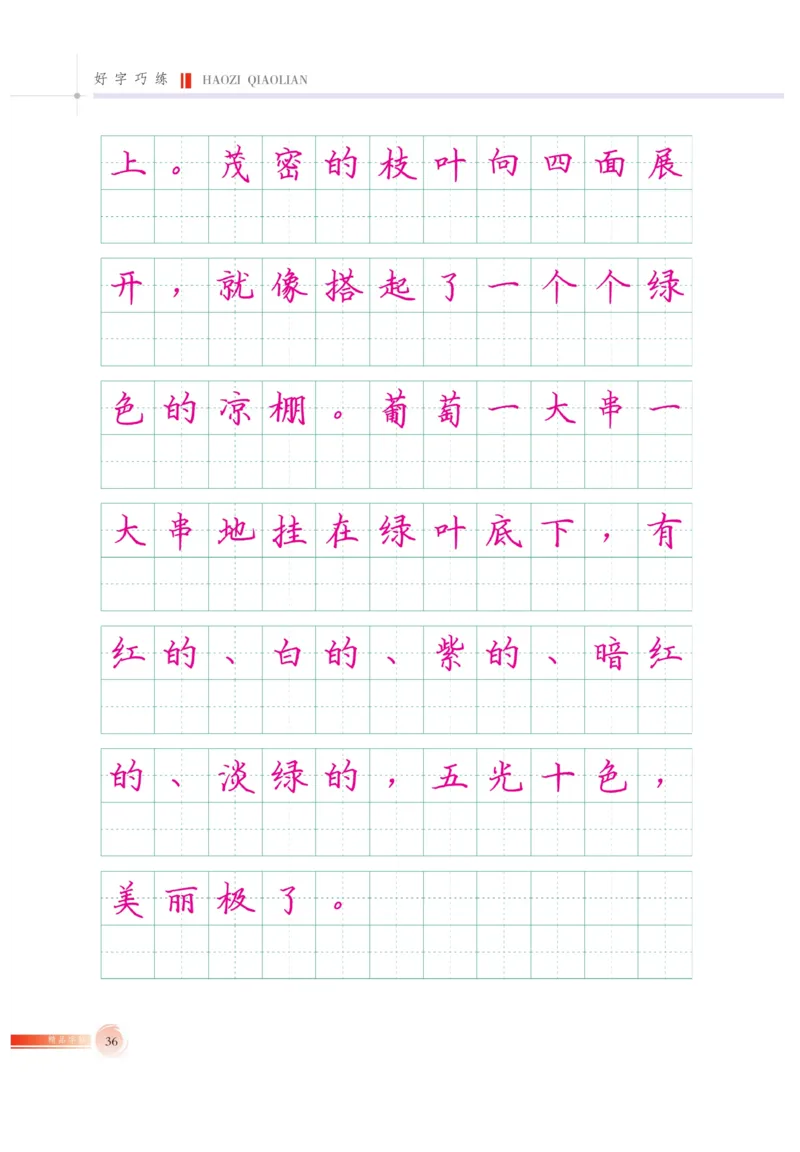 好字巧练 HAOZI QIAOLIAN
上。茂密的枝叶向四面展
开，就像搭起了一个个绿
色的凉棚。葡萄一大串一
大串地挂在绿叶底下，有
红的、白的、紫的、暗红
的、淡绿的，五光十色，
美丽极了。
36